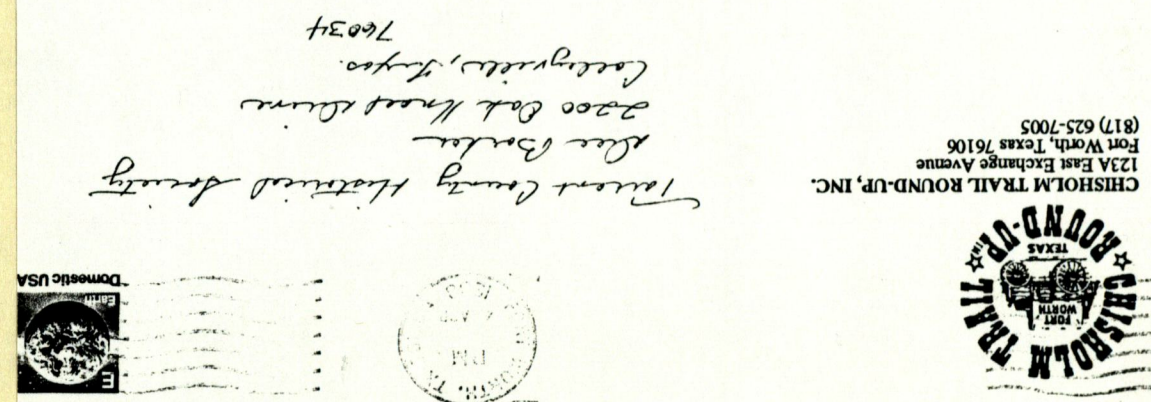 CHISHOLM TRAIL ROUND-UP INC
FORT WORTH
TEXAS
CHISHOLM TRAIL ROUND-UP, INC.
123A East Exchange Avenue
Fort Worth, Texas 76106
(817) 625-7005
PM
E
Earth
Domestic USA
Tarrent County Historical Society
Dee Barker
2200 Oak Knoll Drive
Colleyville, Texas.
76034